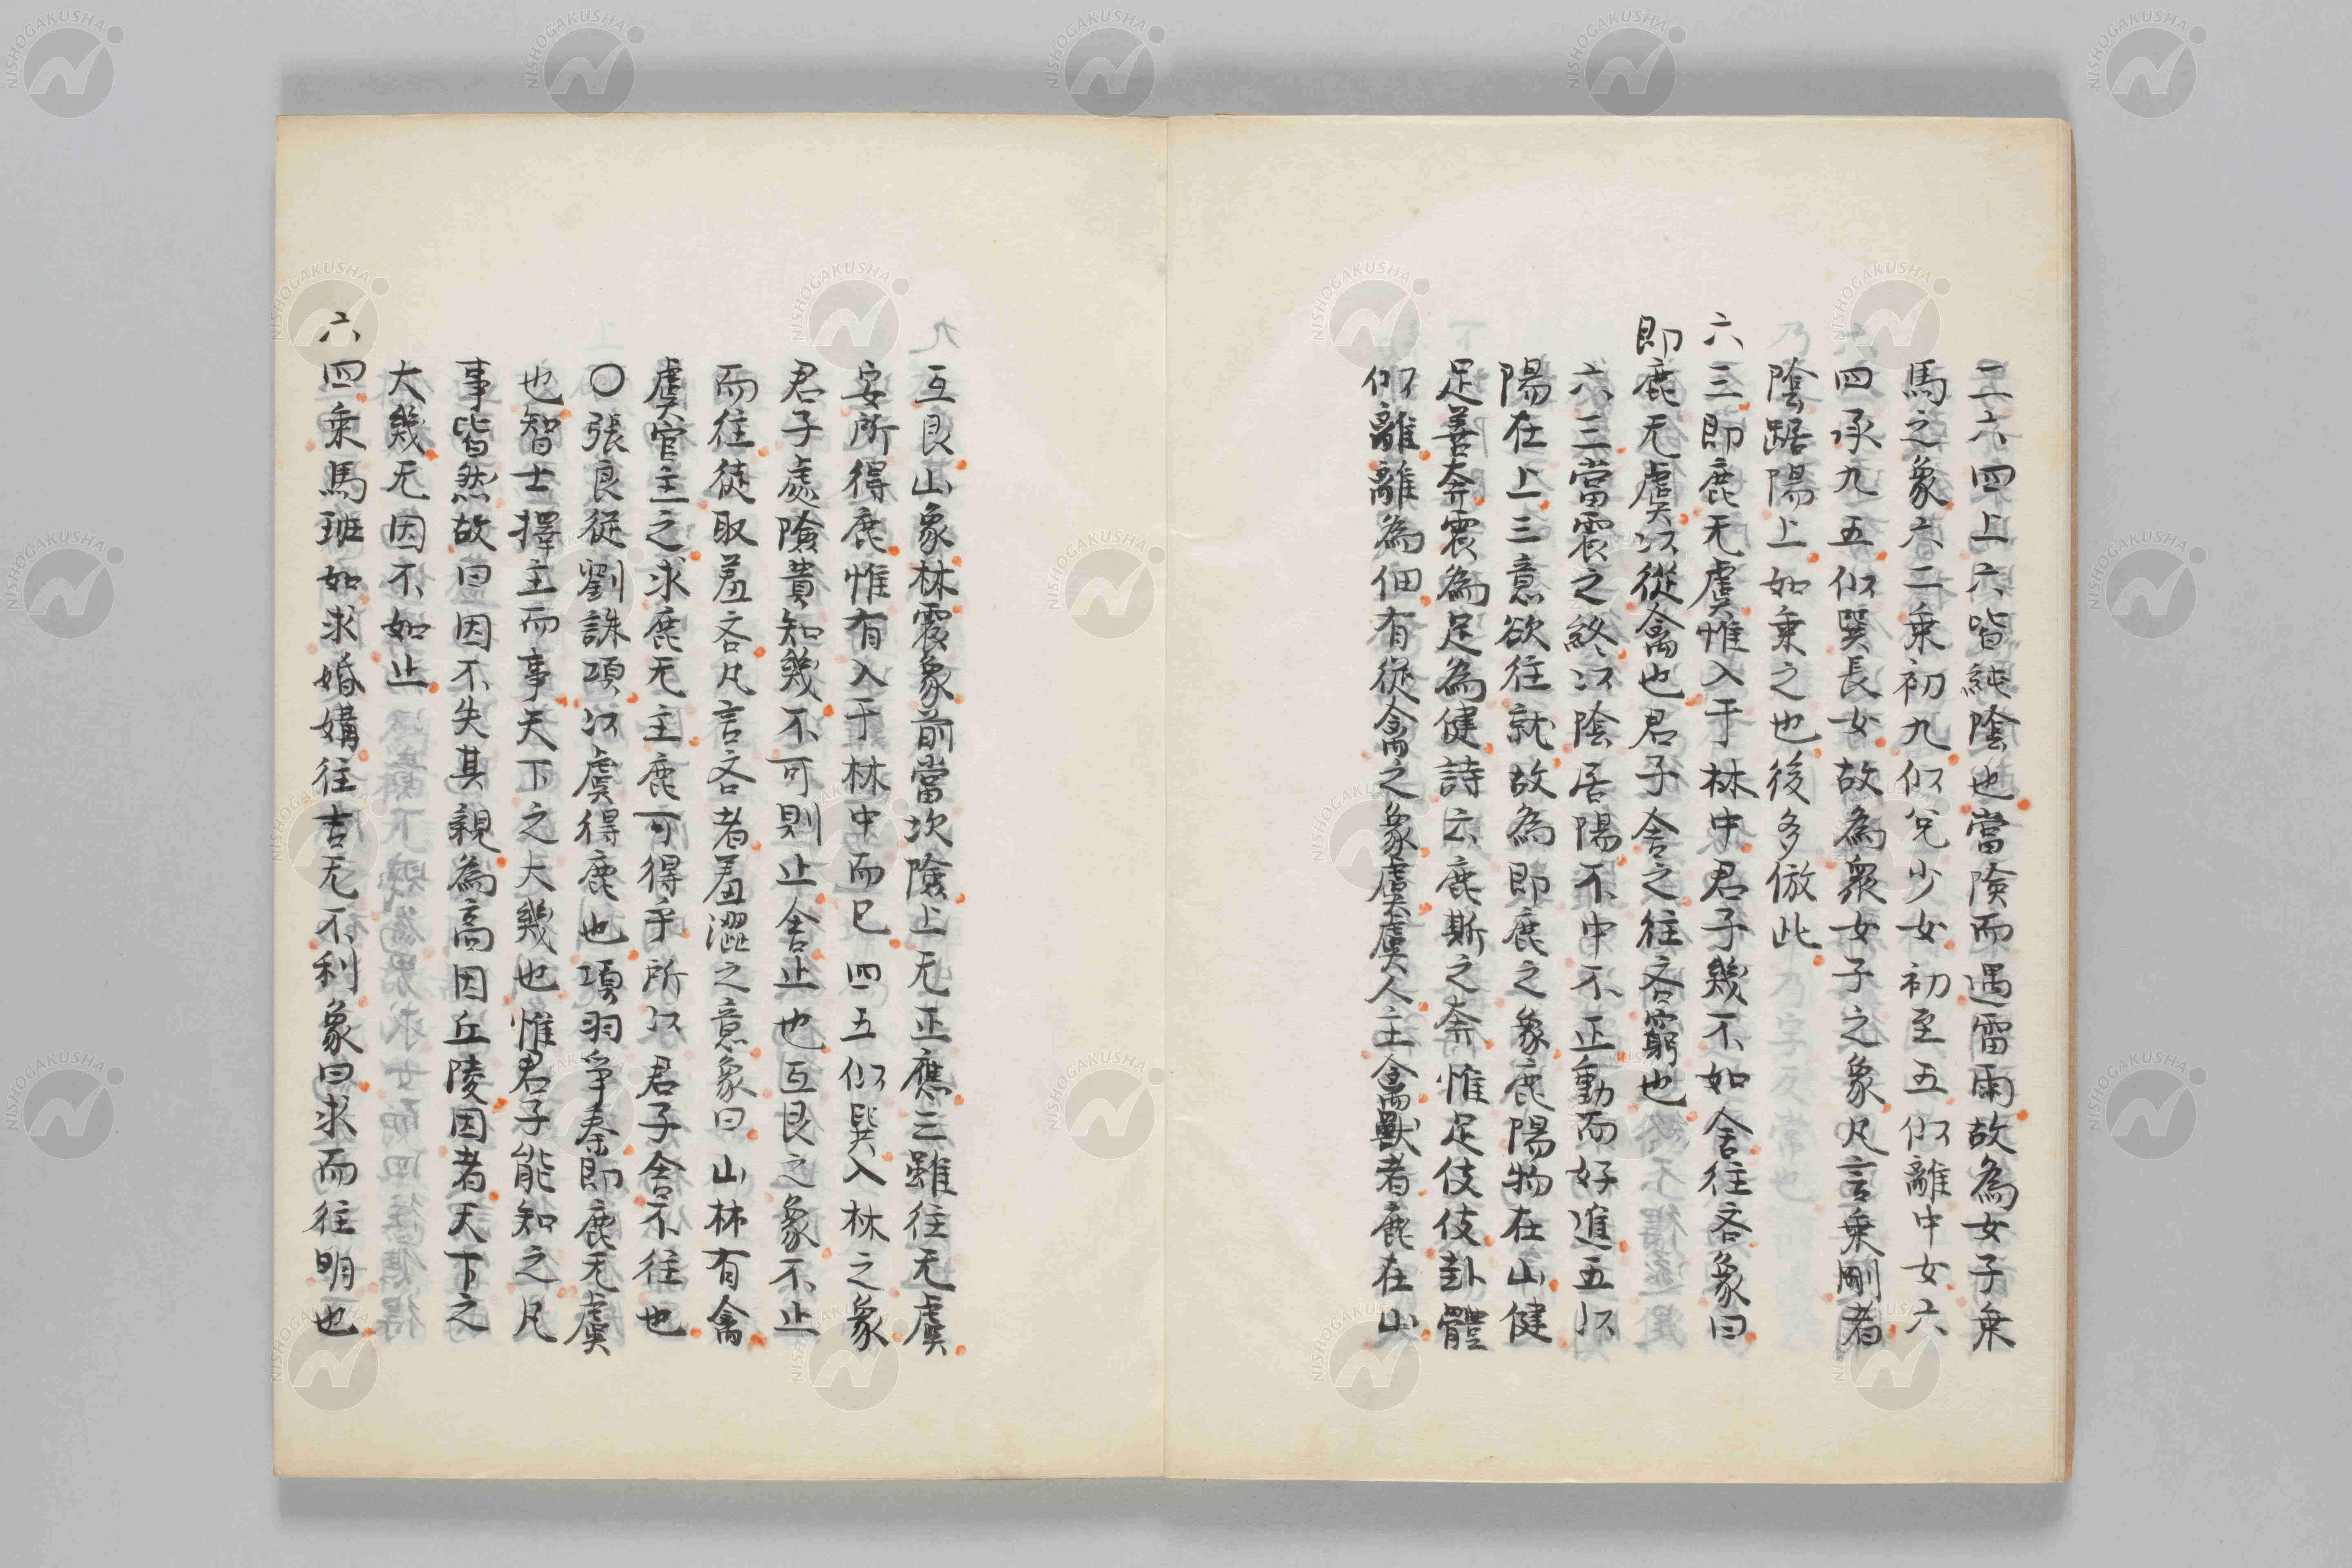 二六四上六皆純陰也當險而遇雷雨故為女子乗
馬之象六二乗初九似兌少女初至五似離中女六
四承九五似巽長女故為衆女子之象凡言乗剛者
陰踞陽上如乗之也後多倣此
六三即鹿无虞惟入于林中君子幾不如舍往吝象曰
即鹿无虞以從禽也君子舍之往吝窮也
六三當震之終以陰居陽不中不正動而好進五以
陽在上三意欲往就故為即鹿之象鹿陽物在山健
足善奔震為足為健詩云鹿斯之奔惟足伎伎卦體
似離離為佃有從禽之象虞虞人主禽獸者鹿在山
互艮山象林震象前當坎險上无正應三雖往无虞
安所得鹿惟有入于林中而巳四五似巽入林之象
君子處險貴知幾不可則止舍止也互艮之象不止
而往徒取羞吝凡言吝者羞澀之意象曰山林有禽
虞官主之求鹿无主鹿可得乎所以君子舍不往也
〇張良從劉誅項以虞得鹿也項羽爭秦即鹿无虞
也智士擇主而事天下之大幾也惟君子能知之凡
事皆然故曰因不失其親為高因丘陵因者天下之
大幾无因不如止
六四乗馬班如求婚媾往吉无不利象曰求而往明也
NISHOGAKUSHA